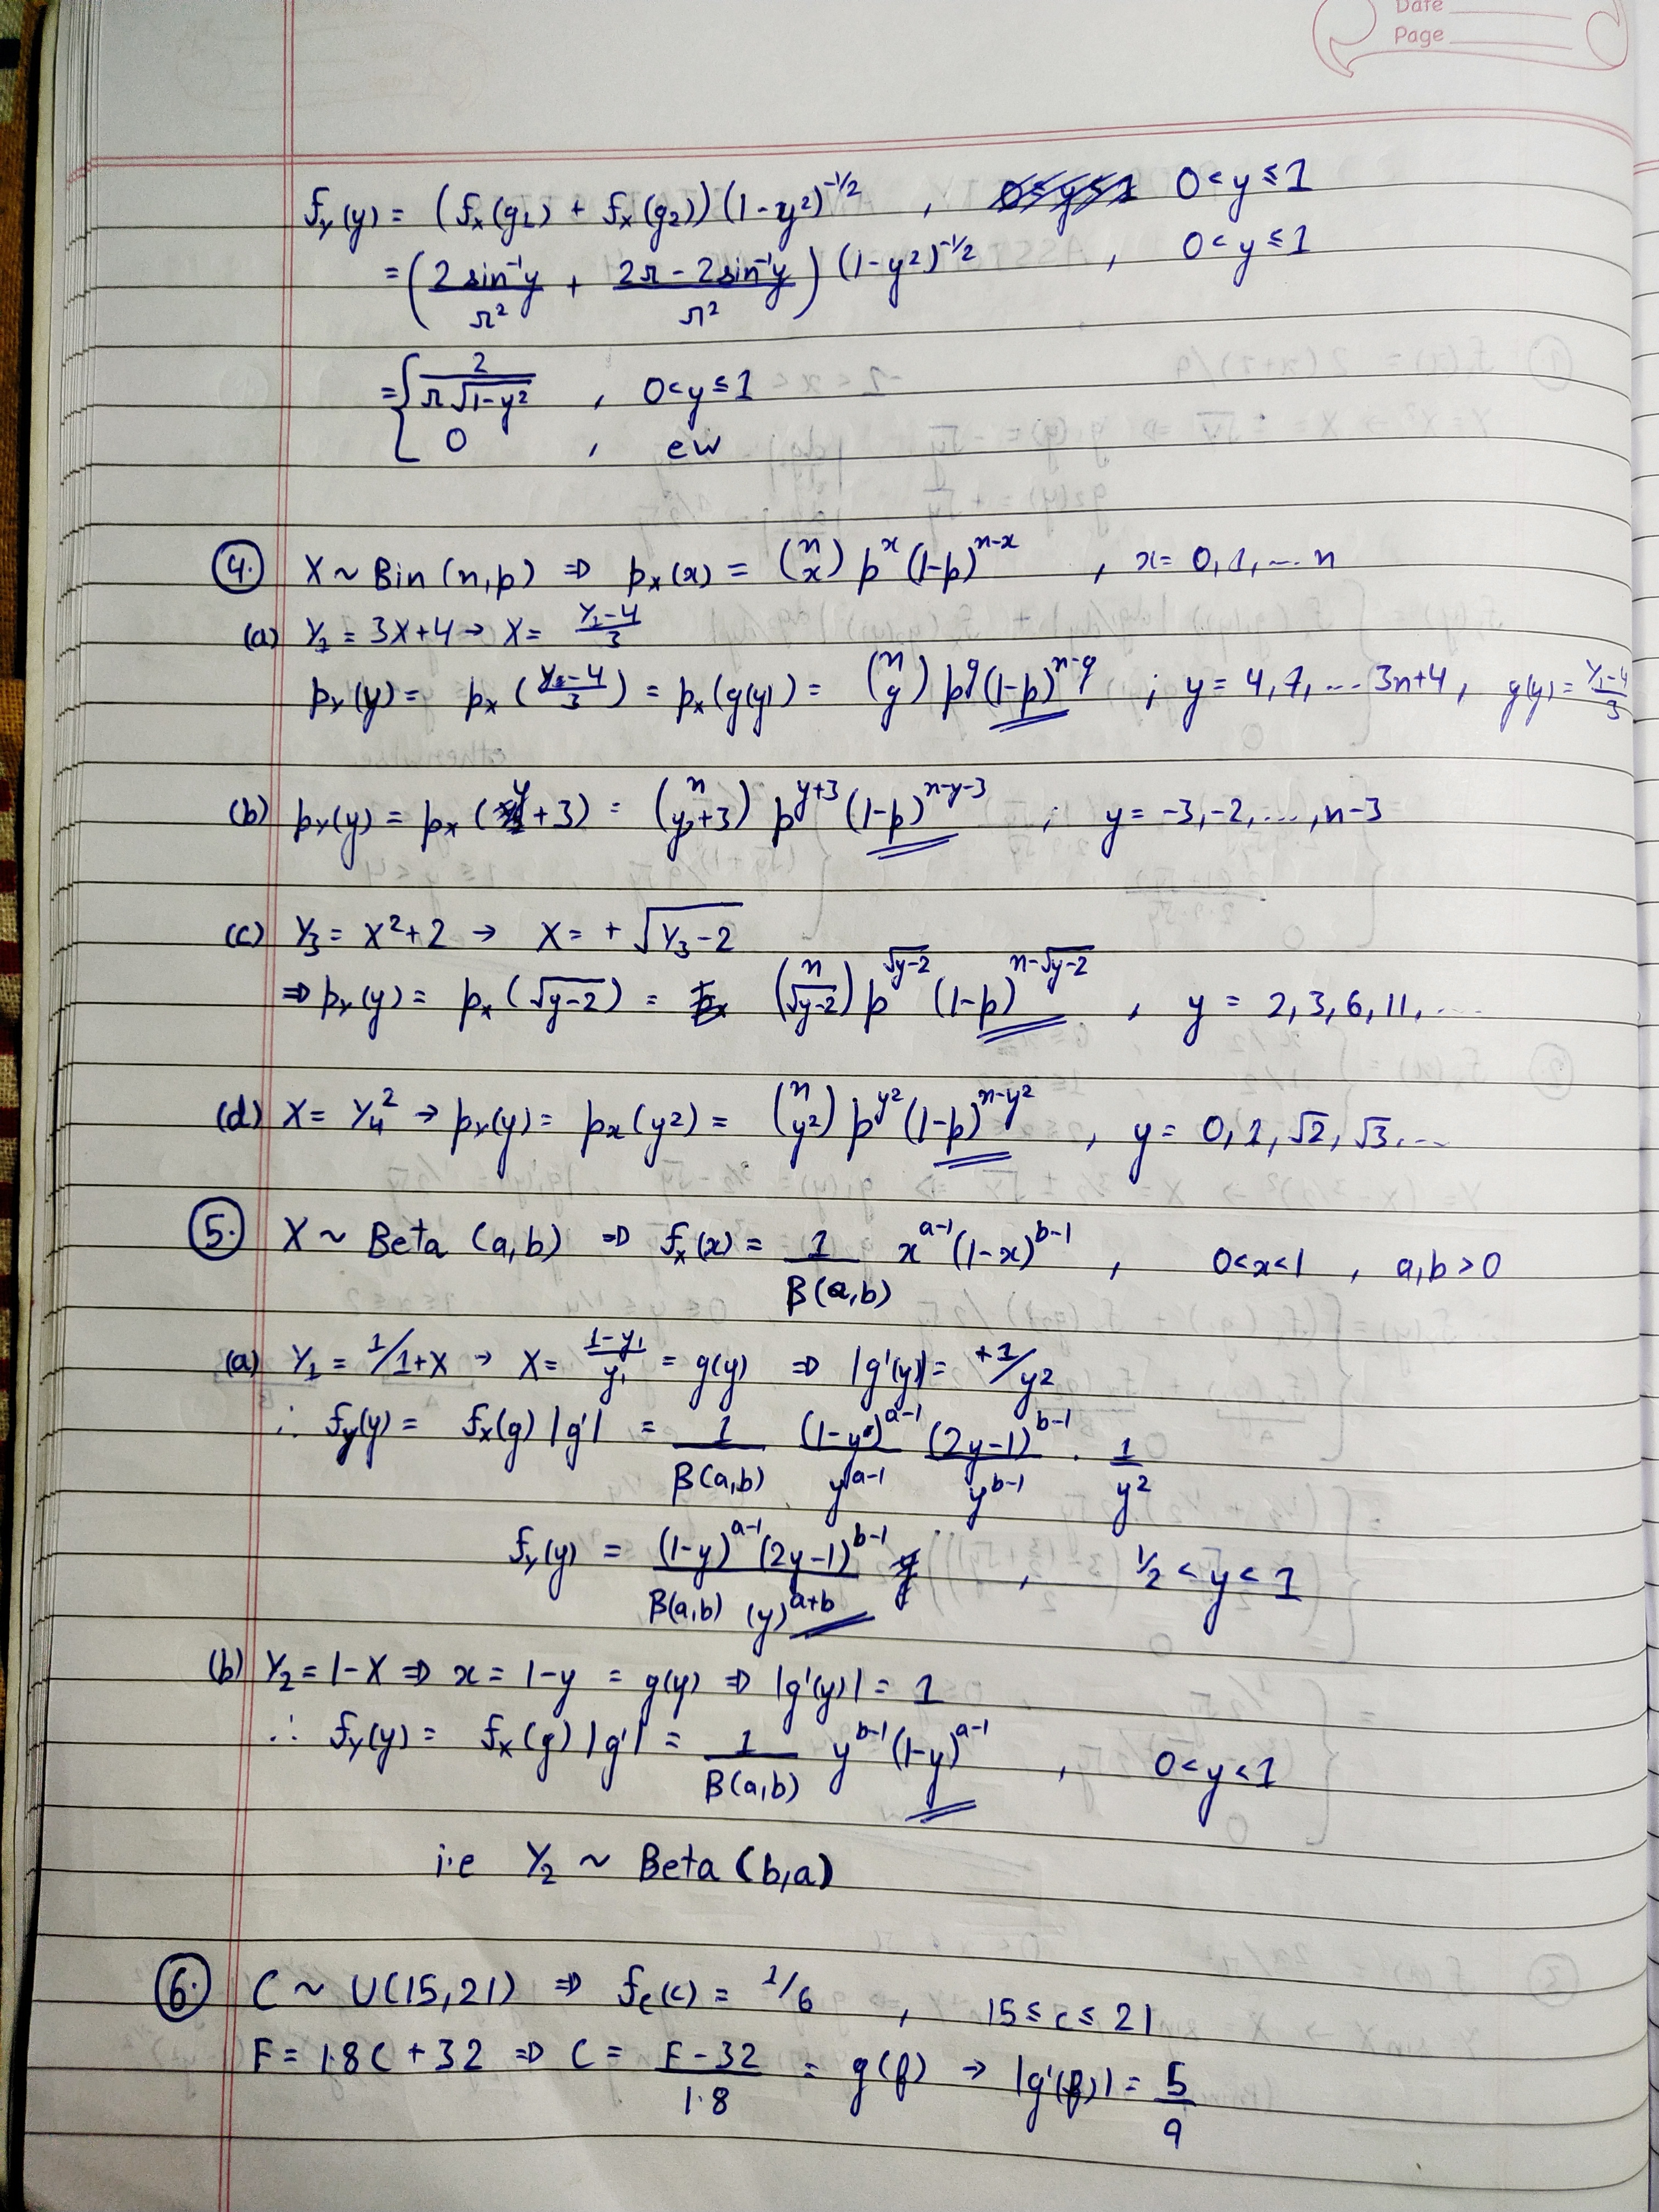 Date
Page
f_Y(y) = (f_X(g_1) + f_X(g_2))(1-y²)^{-1/2} , 0<y≤1
= (2sin⁻¹y/π² + (2π-2sin⁻¹y)/π²)(1-y²)^{-1/2} , 0<y≤1
= { 2/(π√(1-y²)) , 0<y≤1
0 , ew
④. X ~ Bin(n,p) ⇒ p_X(x) = (n x) p^x (1-p)^{n-x} , x= 0,1,...n
(a) Y_1 = 3X+4 → X= (Y_1-4)/3
p_Y(y) = p_X((Y_1-4)/3) = p_X(g(y)) = (n g) p^g (1-p)^{n-g} ; y= 4,7,...3n+4, g(y)= (Y_1-4)/3
(b) p_Y(y) = p_X(y+3) = (n y+3) p^{y+3} (1-p)^{n-y-3} ; y= -3,-2,...,n-3
(c) Y_3 = X²+2 → X= +√(Y_3-2)
⇒ p_Y(y) = p_X(√(y-2)) = (n √(y-2)) p^{√(y-2)} (1-p)^{n-√(y-2)} , y = 2,3,6,11,...
(d) X= Y_4² → p_Y(y)= p_X(y²) = (n y²) p^{y²} (1-p)^{n-y²} , y= 0,1,√2,√3,...
⑤. X ~ Beta (a,b) ⇒ f_X(x) = 1/β(a,b) x^{a-1}(1-x)^{b-1} , 0<x<1 , a,b>0
(a) Y_1 = 1/1+X → X= (1-y_1)/y_1 = g(y) ⇒ |g'(y)|= +1/y²
∴ f_Y(y) = f_X(g) |g'| = 1/β(a,b) (1-y)^{a-1}/y^{a-1} (2y-1)^{b-1}/y^{b-1} . 1/y²
f_Y(y) = (1-y)^{a-1}(2y-1)^{b-1}/(β(a,b) (y)^{a+b}) , 1/2<y<1
(b) Y_2 = 1-X ⇒ x = 1-y = g(y) ⇒ |g'(y)| = 1
∴ f_Y(y) = f_X(g) |g'| = 1/β(a,b) y^{b-1}(1-y)^{a-1} , 0<y<1
i.e Y_2 ~ Beta(b,a)
⑥. C ~ U(15,21) ⇒ f_C(c) = 1/6 , 15≤c≤21
F = 1.8C+32 ⇒ C = (F-32)/1.8 = g(f) → |g'(f)| = 5/9